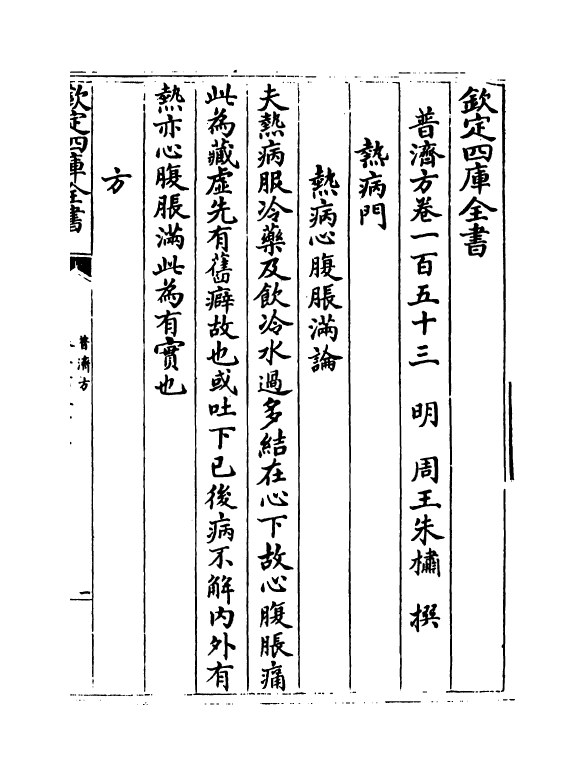 欽定四庫全書
普濟方卷一百五十三　明　周王朱橚　撰
熱病門
熱病心腹脹滿論
夫熱病服冷藥及飲冷水過多結在心下故心腹脹痛
此為藏虛先有舊癖故也或吐下已後病不解內外有
熱亦心腹脹滿此為有實也
方
欽定四庫全書
普濟方
一